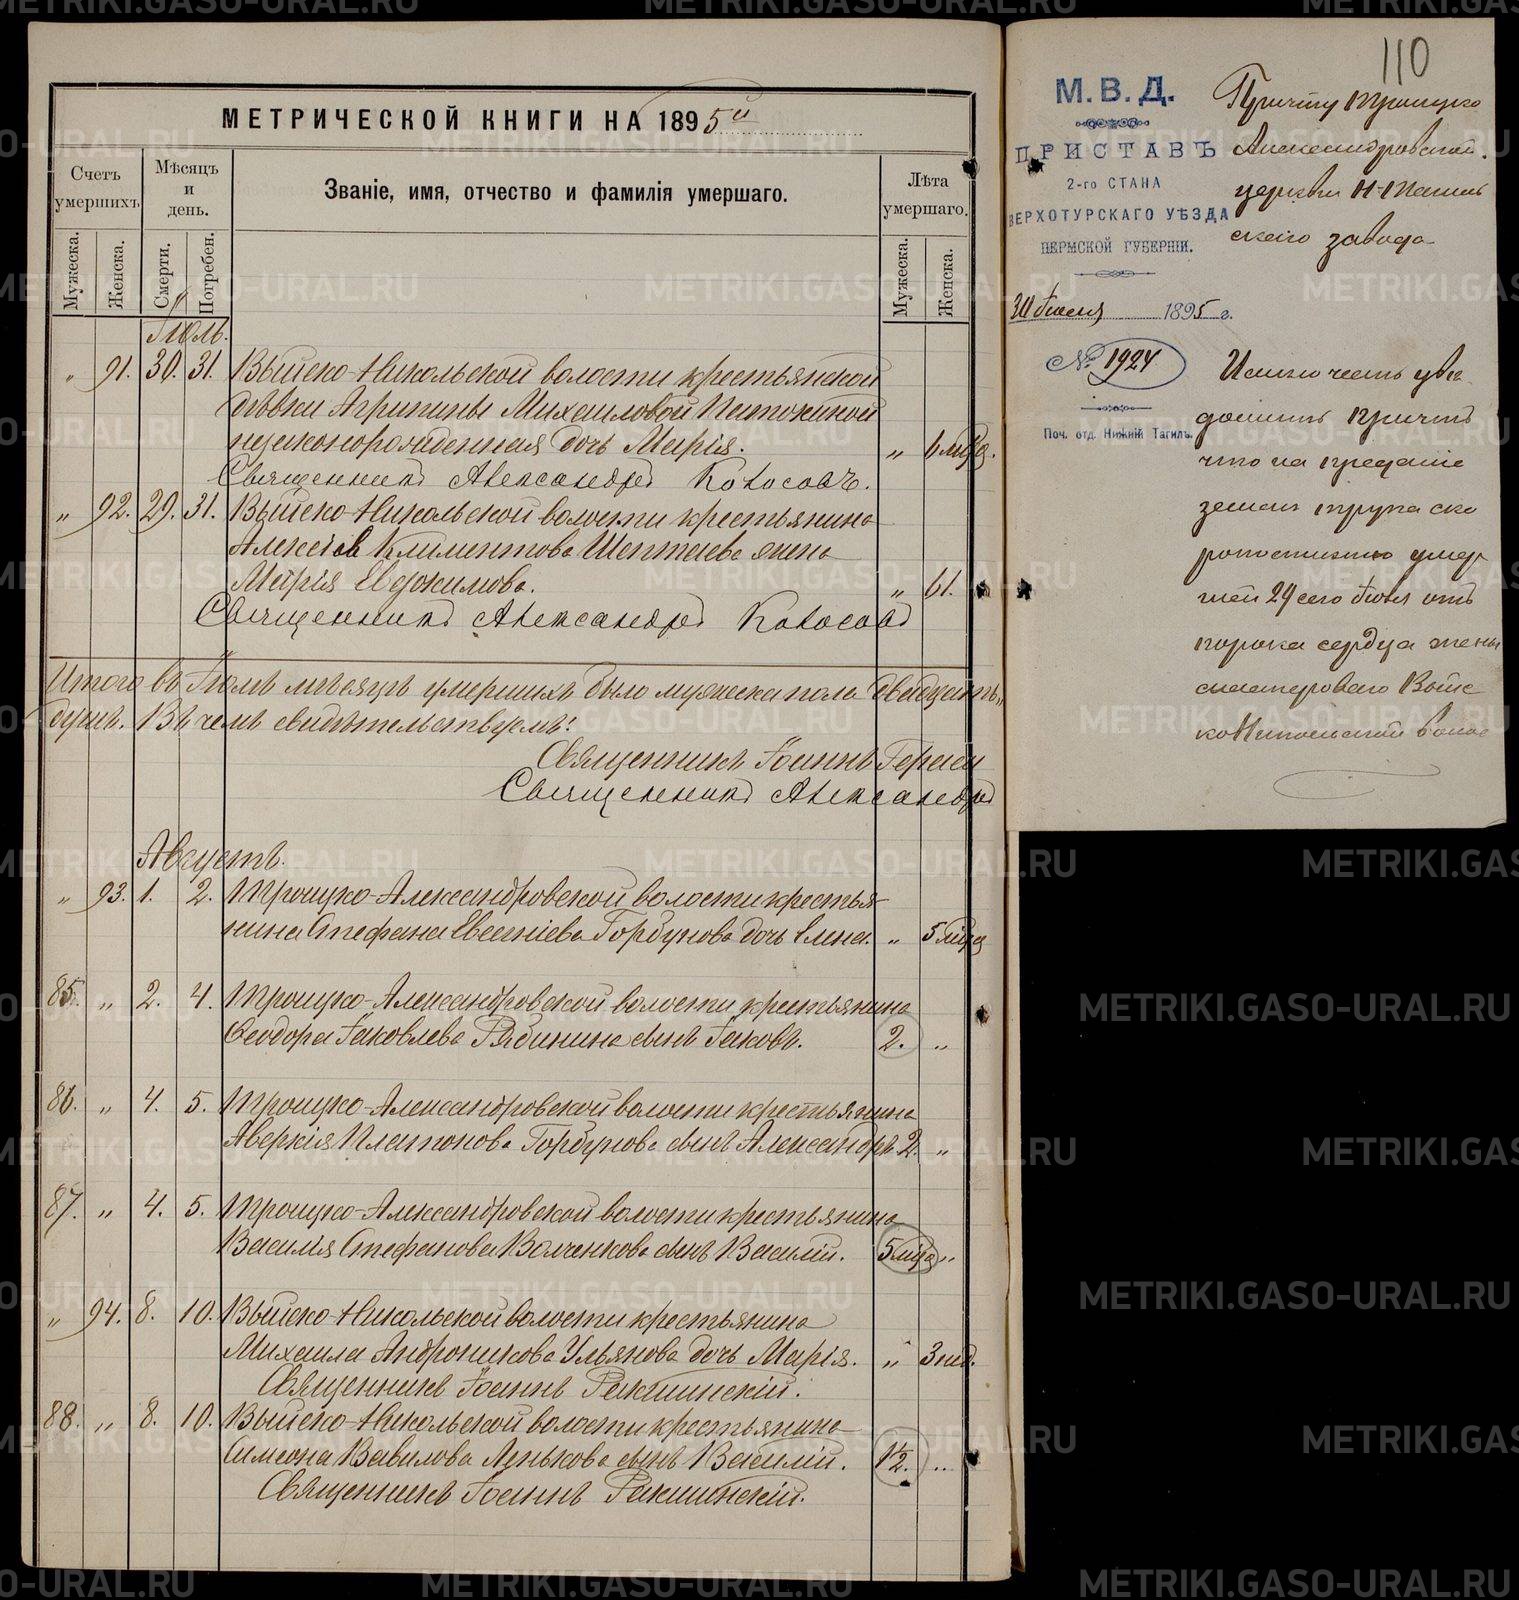 МЕТРИЧЕСКОЙ КНИГИ НА 1895й
Счетъ умершихъ.
Мѣсяцъ и день.
Званіе, имя, отчество и фамилія умершаго.
Лѣта умершаго.
Мужеска.
Женска.
Смерти.
Погребен.
Мужеска.
Женска.
Іюль.
„ 91. 30. 31. Выйско-Никольской волости крестьянской
дѣвки Агрипины Михаиловой
незаконорожденная дочь Марія. „
Священникъ Александръ Колосовъ.
„ 92. 29. 31. Выйско-Никольской волости крестьянина
Алексія Климентова жена
Марія Евдокимова. „ 61.
Священникъ Александръ Колосовъ
Итого въ Іюлѣ мѣсяцѣ умершихъ было мужеска пола двадцать
душъ. Въ чемъ свидѣтельствуемъ:
Священникъ Іоаннъ
Священникъ Александръ
Августъ.
„ 93. 1. 2. Троицко-Александровской волости крестья-
нина Стефана Евгеніева Горбунова дочь Елена. „ 5 мѣс.
85. „ 2. 4. Троицко-Александровской волости крестьянина
Ѳеодора Іаковлева Рябинина сынъ Іаковъ. 2. „
86. „ 4. 5. Троицко-Александровской волости крестьянина
Аверкія Платонова Горбунова сынъ Александръ 2. „
87. „ 4. 5. Троицко-Александровской волости крестьянина
Василія Стефанова Волченкова сынъ Василій. 5 мѣс. „
„ 94. 8. 10. Выйско-Никольской волости крестьянина
Михаила Андроникова Ульянова дочь Марія. „ 3 нед.
Священникъ Іоаннъ
88. „ 8. 10. Выйско-Никольской волости крестьянина
Симеона Вавилова Ленькова сынъ Василій. „
Священникъ Іоаннъ
110
М. В. Д.
ПРИСТАВЪ
2-го СТАНА
ВЕРХОТУРСКАГО УѢЗДА
ПЕРМСКОЙ ГУБЕРНІИ.
Іюля 1895 г.
№ 1924
Поч. отд. Нижній Тагилъ.
Причту Троицко
Александровской
церкви Н-Тагиль
скаго завода
Имѣю честь уве
домить причтъ
что на преданіе
земли трупа ско
ропостижно умер
шей 29 сего Іюля отъ
порока сердца жены
мастероваго Выйс
коНикольской волос
METRIKI.GASO-URAL.RU